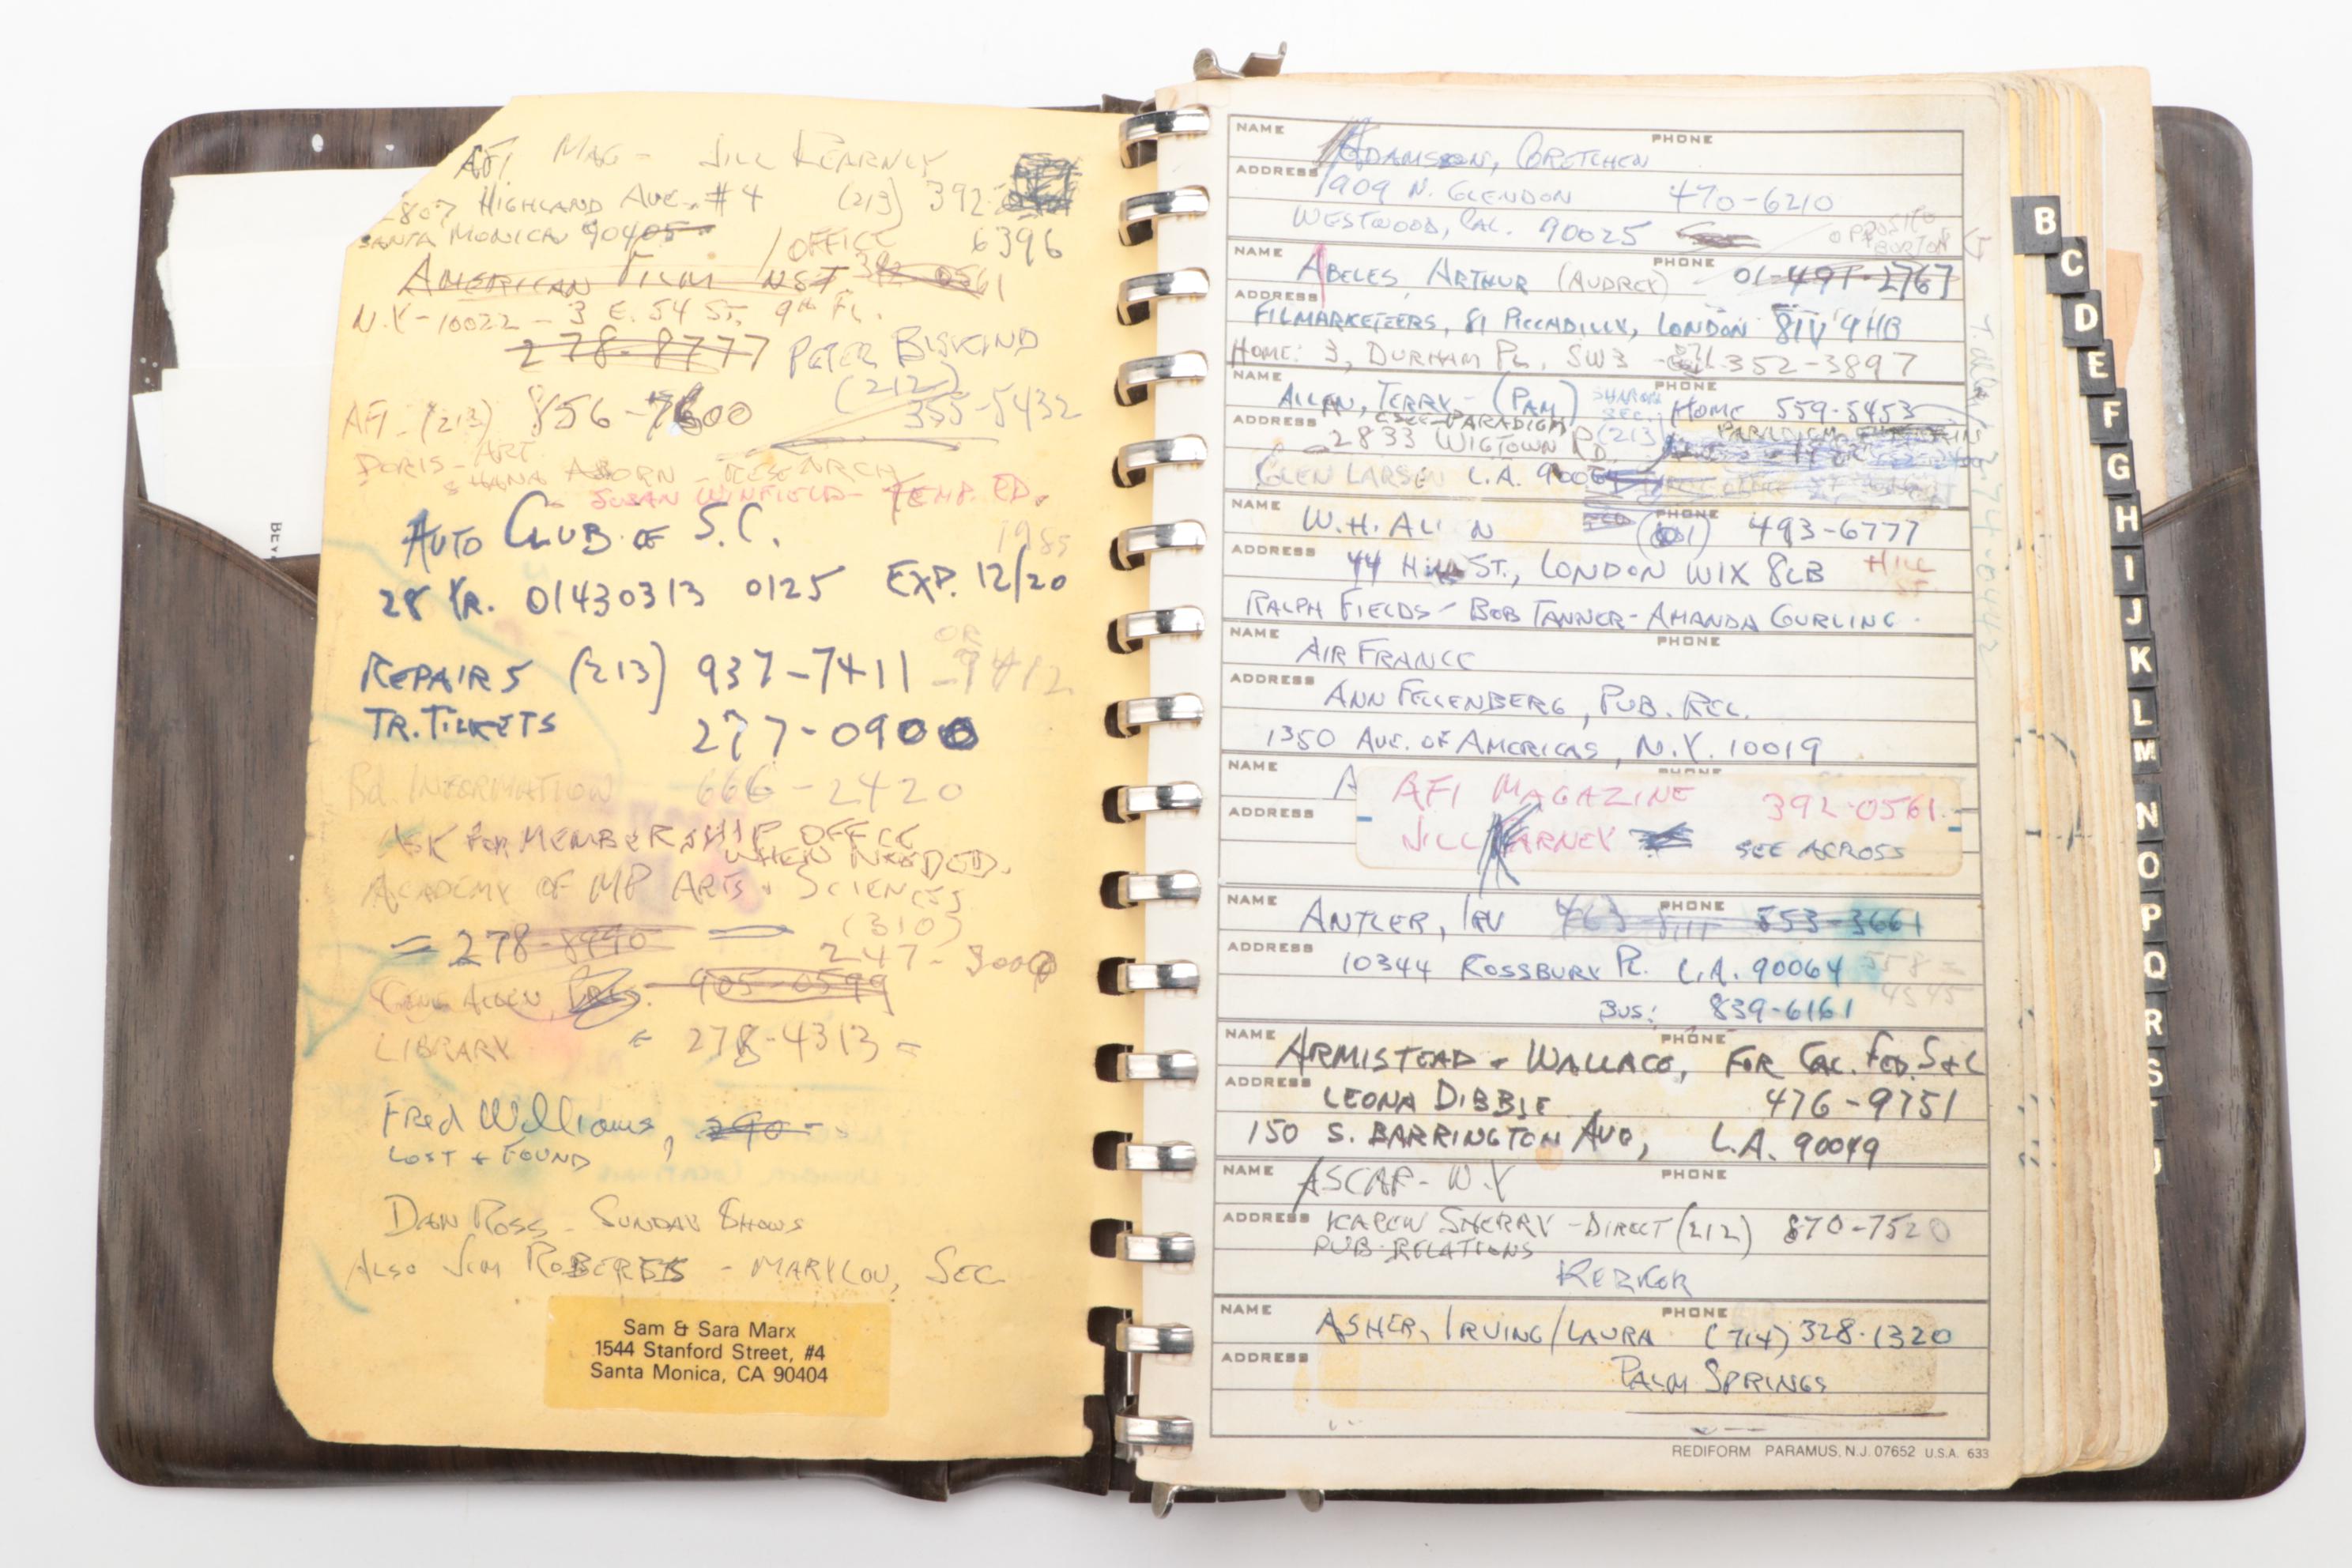 AFI MAG - JILL KEARNEY
2807 HIGHLAND AVE. #4 (213) 392-
SANTA MONICA 90405 6396
/OFFICE
AMERICAN FILM INST. 392 0561
N.Y-10022 - 3 E. 54 ST, 9th FL.
278-8777 PETER BISKIND
(212)
AFI - (213) 856-7600 355-5432
DORIS - ART
RESEARCH
SUSAN WINFIELD - TEMP. ED.
AUTO CLUB OF S.C. 1985
28 YR. 01430313 0125 EXP. 12/20
OR
REPAIRS (213) 937-7411 -7412
TR. TICKETS 277-0900
Bd. INFORMATION 666-2420
ASK FOR MEMBERSHIP OFFICE
WHEN NEEDED.
ACADEMY OF MP ARTS & SCIENCES
(310)
= 278-8990 247-3000
GENE ALLEN, PRES. 905-0599
LIBRARY = 278-4313 =
Fred Williams, 290
LOST & FOUND
DAN ROSS - SUNDAY SHOWS
ALSO JIM ROBERTS - MARYLOU, SEC
Sam & Sara Marx
1544 Stanford Street, #4
Santa Monica, CA 90404
BEV
NAME ADAMSON, GRETCHEN PHONE
ADDRESS 1909 N. GLENDON 470-6210
WESTWOOD, CAL. 90025
OPPOSITE
BURTON
NAME ABELES, ARTHUR (AUDREY) PHONE 01-499-2767
ADDRESS FILMARKETEERS, 81 PICCADILLY, LONDON 81V 9HB
HOME: 3, DURHAM PL, SW3 071 352-3897
NAME ALLEN, TERRY - (PAM) SHARON SEC. PHONE HOME 559-5453
(SEE PARADIGM)
ADDRESS 2833 WIGTOWN RD. (213) PARADIGM
GLEN LARSEN L.A. 90064
T. Allen 274-0442
NAME W.H. ALLEN PHONE (01) 493-6777
ADDRESS 44 HILL ST., LONDON W1X 8LB HILL ST.
RALPH FIELDS - BOB TANNER - AMANDA GURLING.
NAME AIR FRANCE PHONE
ADDRESS ANN FELLENBERG, PUB. REL.
1350 AVE. OF AMERICAS, N.Y. 10019
NAME A PHONE
AFI MAGAZINE 392-0561
ADDRESS JILL KARNEY SEE ACROSS
NAME ANTLER, IRV 463-8111 PHONE 553-3661
ADDRESS 10344 ROSSBURY PL. L.A. 90064 558-4545
BUS: 839-6161
NAME ARMISTEAD & WALLACE, FOR CAL. FED. S&L PHONE
ADDRESS LEONA DIBBLE 476-9751
150 S. BARRINGTON AVE, L.A. 90049
NAME ASCAP - N.Y PHONE
ADDRESS KAREN SHERRY - DIRECT (212) 870-7520
PUB. RELATIONS
KERKER
NAME ASHER, IRVING/LAURA PHONE (714) 328-1320
ADDRESS PALM SPRINGS
REDIFORM PARAMUS, N.J. 07652 U.S.A. 633
B
C
D
E
F
G
H
I
J
K
L
M
N
O
P
Q
R
S
T
U